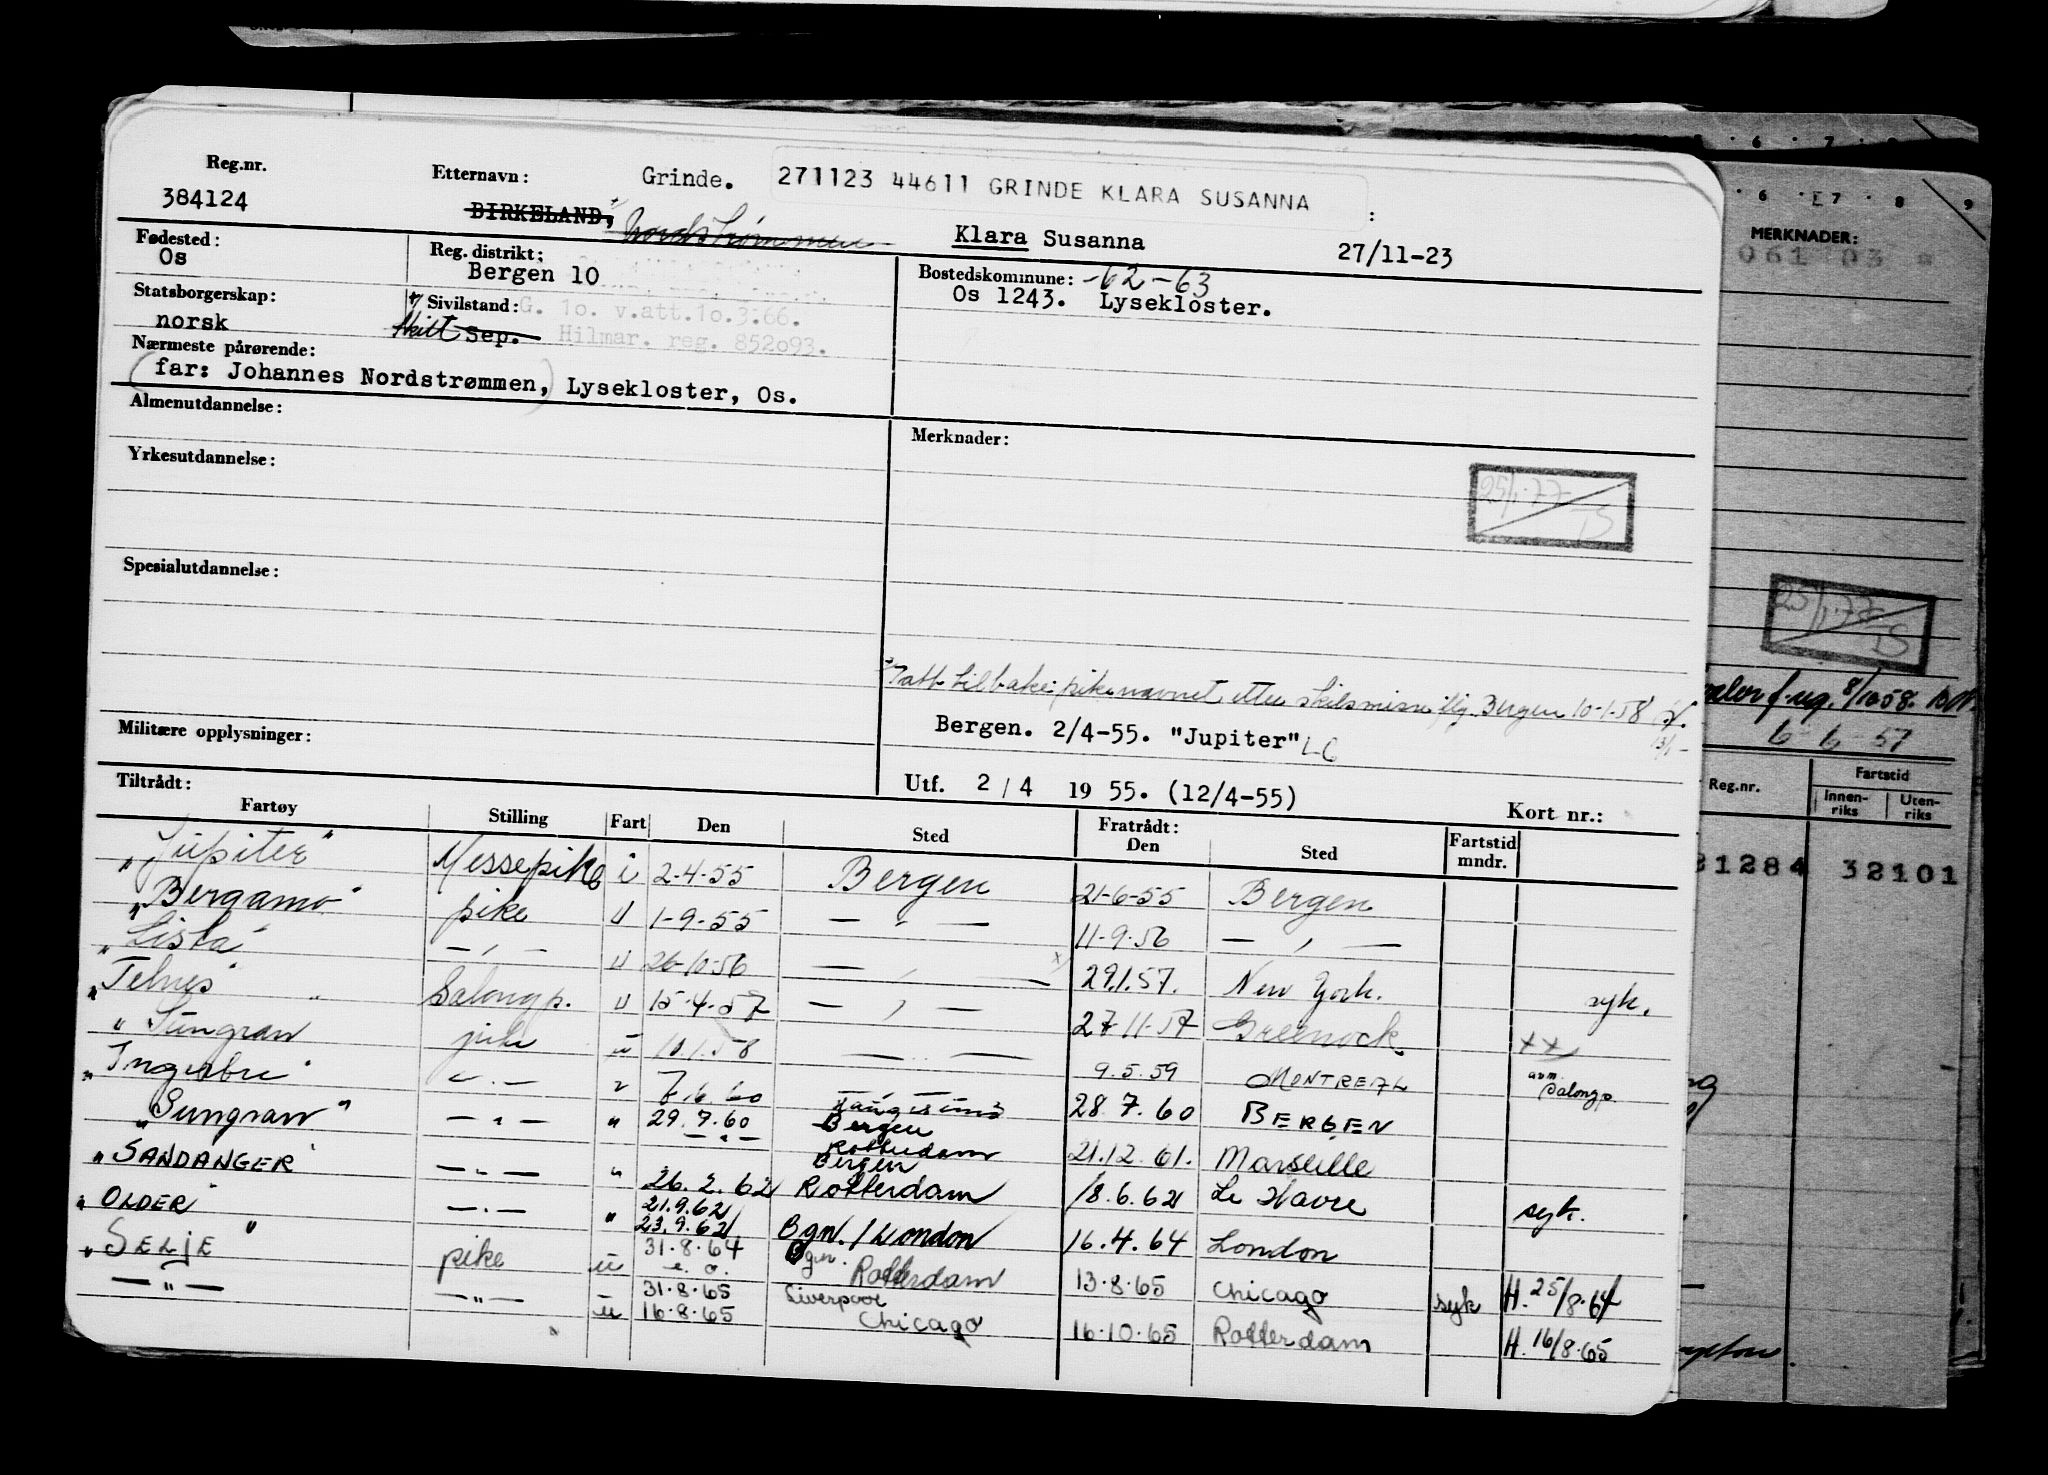 Reg.nr.
384124
Etternavn: Grinde. 271123 44611 GRINDE KLARA SUSANNA :
BIRKELAND, Nordstrømmen Klara Susanna 27/11-23
Fødested: Os
Reg. distrikt: Bergen 10
Bostedskommune: -62-63
Os 1243. Lysekloster.
Statsborgerskap: norsk
Sivilstand: G. 10. v.att.10.3.66.
skilt Sep. Hilmar. reg. 852093.
Nærmeste pårørende:
(far: Johannes Nordstrømmen,) Lysekloster, Os.
Almenutdannelse:
Merknader:
Yrkesutdannelse:
25/1-77
TS
Spesialutdannelse:
Tatt tilbake pikenavnet etter skilsmisse iflg. Bergen 10-1-58
Bergen. 2/4-55. "Jupiter" LC
Militære opplysninger:
Utf. 2/4 1955. (12/4-55)
Kort nr.:
Tiltrådt: Fratrådt:
Fartøy Stilling Fart Den Sted Den Sted Fartstid mndr.
"Jupiter" Messepike i 2-4-55 Bergen 21-6-55 Bergen
"Bergamo" pike u 1-9-55 — " — 11-9-56 — " —
"Lista" — " — u 26-10-56 — " — x) 29.1.57. New York. syk.
"Telnes" Salongp. u 15-4-57 — " — 27-11-57 Greenock. xx)
"Sungran pike u 10.1.58 — " — 9.5.59 MONTREAL avm. Salongp.
"Ingerbre" — " — " 7.6.60 28.7.60 BERGEN
"Sungran" — " — " 29.7.60 Bergen
— " — Rotterdam 21.12.61. Marseille
"SANDANGER" — " — " 26.2.62 Bergen Rotterdam 18.6.62 Le Havre syk.
"OLDER" — " — " 21.9.62
23.9.62 Bgn./London 16.4.64 London
"SELJE" pike u 31.8.64 Bgn. Rotterdam 13.8.65 Chicago syk H. 25/8.64
— " — — " — u 31.8.65 Liverpool
16.8.65 Chicago 16.10.65 Rotterdam H. 16/8.65
6 7 8 9
MERKNADER:
061 03
25/1-77
TS
8/10 58.
6-6-57
Reg.nr. Fartstid
Innenriks Utenriks
31284 32101